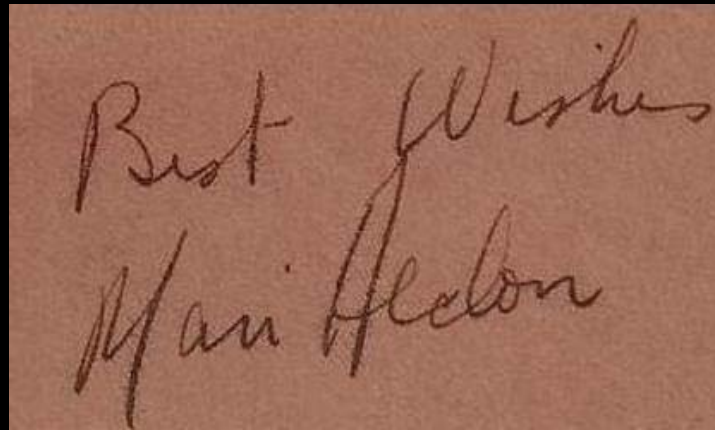 Best Wishes
Mari Aldon